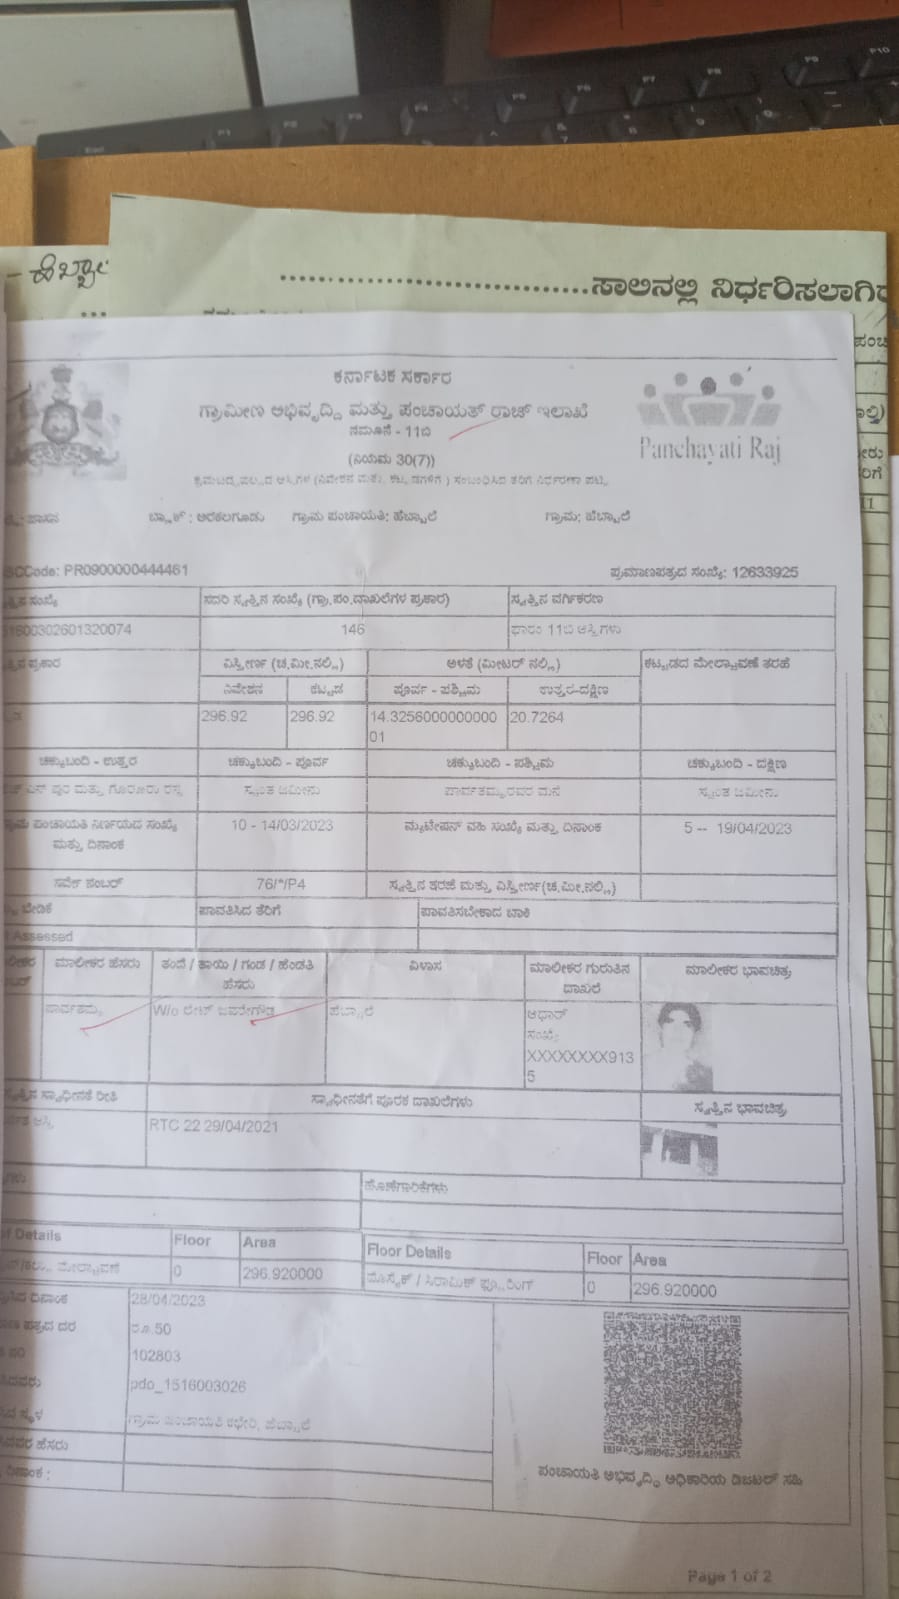 ಸಾಲಿನಲ್ಲಿ ನಿರ್ಧರಿಸಲಾಗಿರ
ಕರ್ನಾಟಕ ಸರ್ಕಾರ
ಗ್ರಾಮೀಣ ಅಭಿವೃದ್ಧಿ ಮತ್ತು ಪಂಚಾಯತ್ ರಾಜ್ ಇಲಾಖೆ
ನಮೂನೆ - 11ಬಿ
(ನಿಯಮ 30(7))
Panchayati Raj
ಹಾಸನ ಬ್ಲಾಕ್ : ಅರಕಲಗೂಡು ಗ್ರಾಮ ಪಂಚಾಯತಿ: ಹೆಬ್ಬಾಲೆ ಗ್ರಾಮ: ಹೆಬ್ಬಾಲೆ
SCCode: PR0900000444461 ಪ್ರಮಾಣಪತ್ರದ ಸಂಖ್ಯೆ: 12633925
ಸ್ವತ್ತಿನ ಸಂಖ್ಯೆ ಸದರಿ ಸ್ವತ್ತಿನ ಸಂಖ್ಯೆ (ಗ್ರಾ.ಪಂ.ದಾಖಲೆಗಳ ಪ್ರಕಾರ) ಸ್ವತ್ತಿನ ವರ್ಗೀಕರಣ
1600302601320074 146 ಫಾರಂ 11ಬಿ ಆಸ್ತಿಗಳು
ಪ್ರಕಾರ ವಿಸ್ತೀರ್ಣ (ಚ.ಮೀ.ನಲ್ಲಿ) ಅಳತೆ (ಮೀಟರ್ ನಲ್ಲಿ) ಕಟ್ಟಡದ ಮೇಲ್ಛಾವಣಿ ತರಹೆ
ನಿವೇಶನ ಕಟ್ಟಡ ಪೂರ್ವ - ಪಶ್ಚಿಮ ಉತ್ತರ-ದಕ್ಷಿಣ
296.92 296.92 14.3256000000000 20.7264
01
ಚಕ್ಕುಬಂದಿ - ಉತ್ತರ ಚಕ್ಕುಬಂದಿ - ಪೂರ್ವ ಚಕ್ಕುಬಂದಿ - ಪಶ್ಚಿಮ ಚಕ್ಕುಬಂದಿ - ದಕ್ಷಿಣ
ಎನ್ ಪುರ ಮತ್ತು ಗೊರೂರು ರಸ್ತೆ ಸ್ವಂತ ಜಮೀನು ಪಾರ್ವತಮ್ಮರವರ ಮನೆ ಸ್ವಂತ ಜಮೀನು
ಪಂಚಾಯತಿ ನಿರ್ಣಯದ ಸಂಖ್ಯೆ 10 - 14/03/2023 ಮ್ಯುಟೇಷನ್ ವಹಿ ಸಂಖ್ಯೆ ಮತ್ತು ದಿನಾಂಕ 5 -- 19/04/2023
ಮತ್ತು ದಿನಾಂಕ
ಸರ್ವೆ ನಂಬರ್ 76/*/P4 ಸ್ವತ್ತಿನ ತರಹೆ ಮತ್ತು ವಿಸ್ತೀರ್ಣ(ಚ.ಮೀ.ನಲ್ಲಿ)
ಬೇಡಿಕೆ ಪಾವತಿಸಿದ ತೆರಿಗೆ ಪಾವತಿಸಬೇಕಾದ ಬಾಕಿ
Assessed
ಮಾಲೀಕರ ಹೆಸರು ತಂದೆ / ತಾಯಿ / ಗಂಡ / ಹೆಂಡತಿ ವಿಳಾಸ ಮಾಲೀಕರ ಗುರುತಿನ ಮಾಲೀಕರ ಭಾವಚಿತ್ರ
ಹೆಸರು ದಾಖಲೆ
ಪಾರ್ವತಮ್ಮ W/o ಲೇಟ್ ಜವರೇಗೌಡ ಹೆಬ್ಬಾಲೆ ಆಧಾರ್
ಸಂಖ್ಯೆ:
XXXXXXXX913
5
ಸ್ವತ್ತಿನ ಸ್ವಾಧೀನತೆ ರೀತಿ ಸ್ವಾಧೀನತೆಗೆ ಪೂರಕ ದಾಖಲೆಗಳು ಸ್ವತ್ತಿನ ಭಾವಚಿತ್ರ
ಆಸ್ತಿ RTC 22 29/04/2021
ಹೊಣೆಗಾರಿಕೆಗಳು
of Details Floor Area Floor Details Floor Area
ಮೇಲ್ಛಾವಣಿ 0 296.920000 ಮೊಸೈಕ್ / ಸಿರಾಮಿಕ್ ಫ್ಲೋರಿಂಗ್ 0 296.920000
ದಿನಾಂಕ 28/04/2023
ಪತ್ರದ ದರ ರೂ.50
102803
pdo_1516003026
ಸ್ಥಳ ಗ್ರಾಮ ಪಂಚಾಯತಿ ಕಛೇರಿ, ಹೆಬ್ಬಾಲೆ
ಹೆಸರು
ದಿನಾಂಕ :
ಪಂಚಾಯತಿ ಅಭಿವೃದ್ಧಿ ಅಧಿಕಾರಿಯ ಡಿಜಿಟಲ್ ಸಹಿ
Page 1 of 2